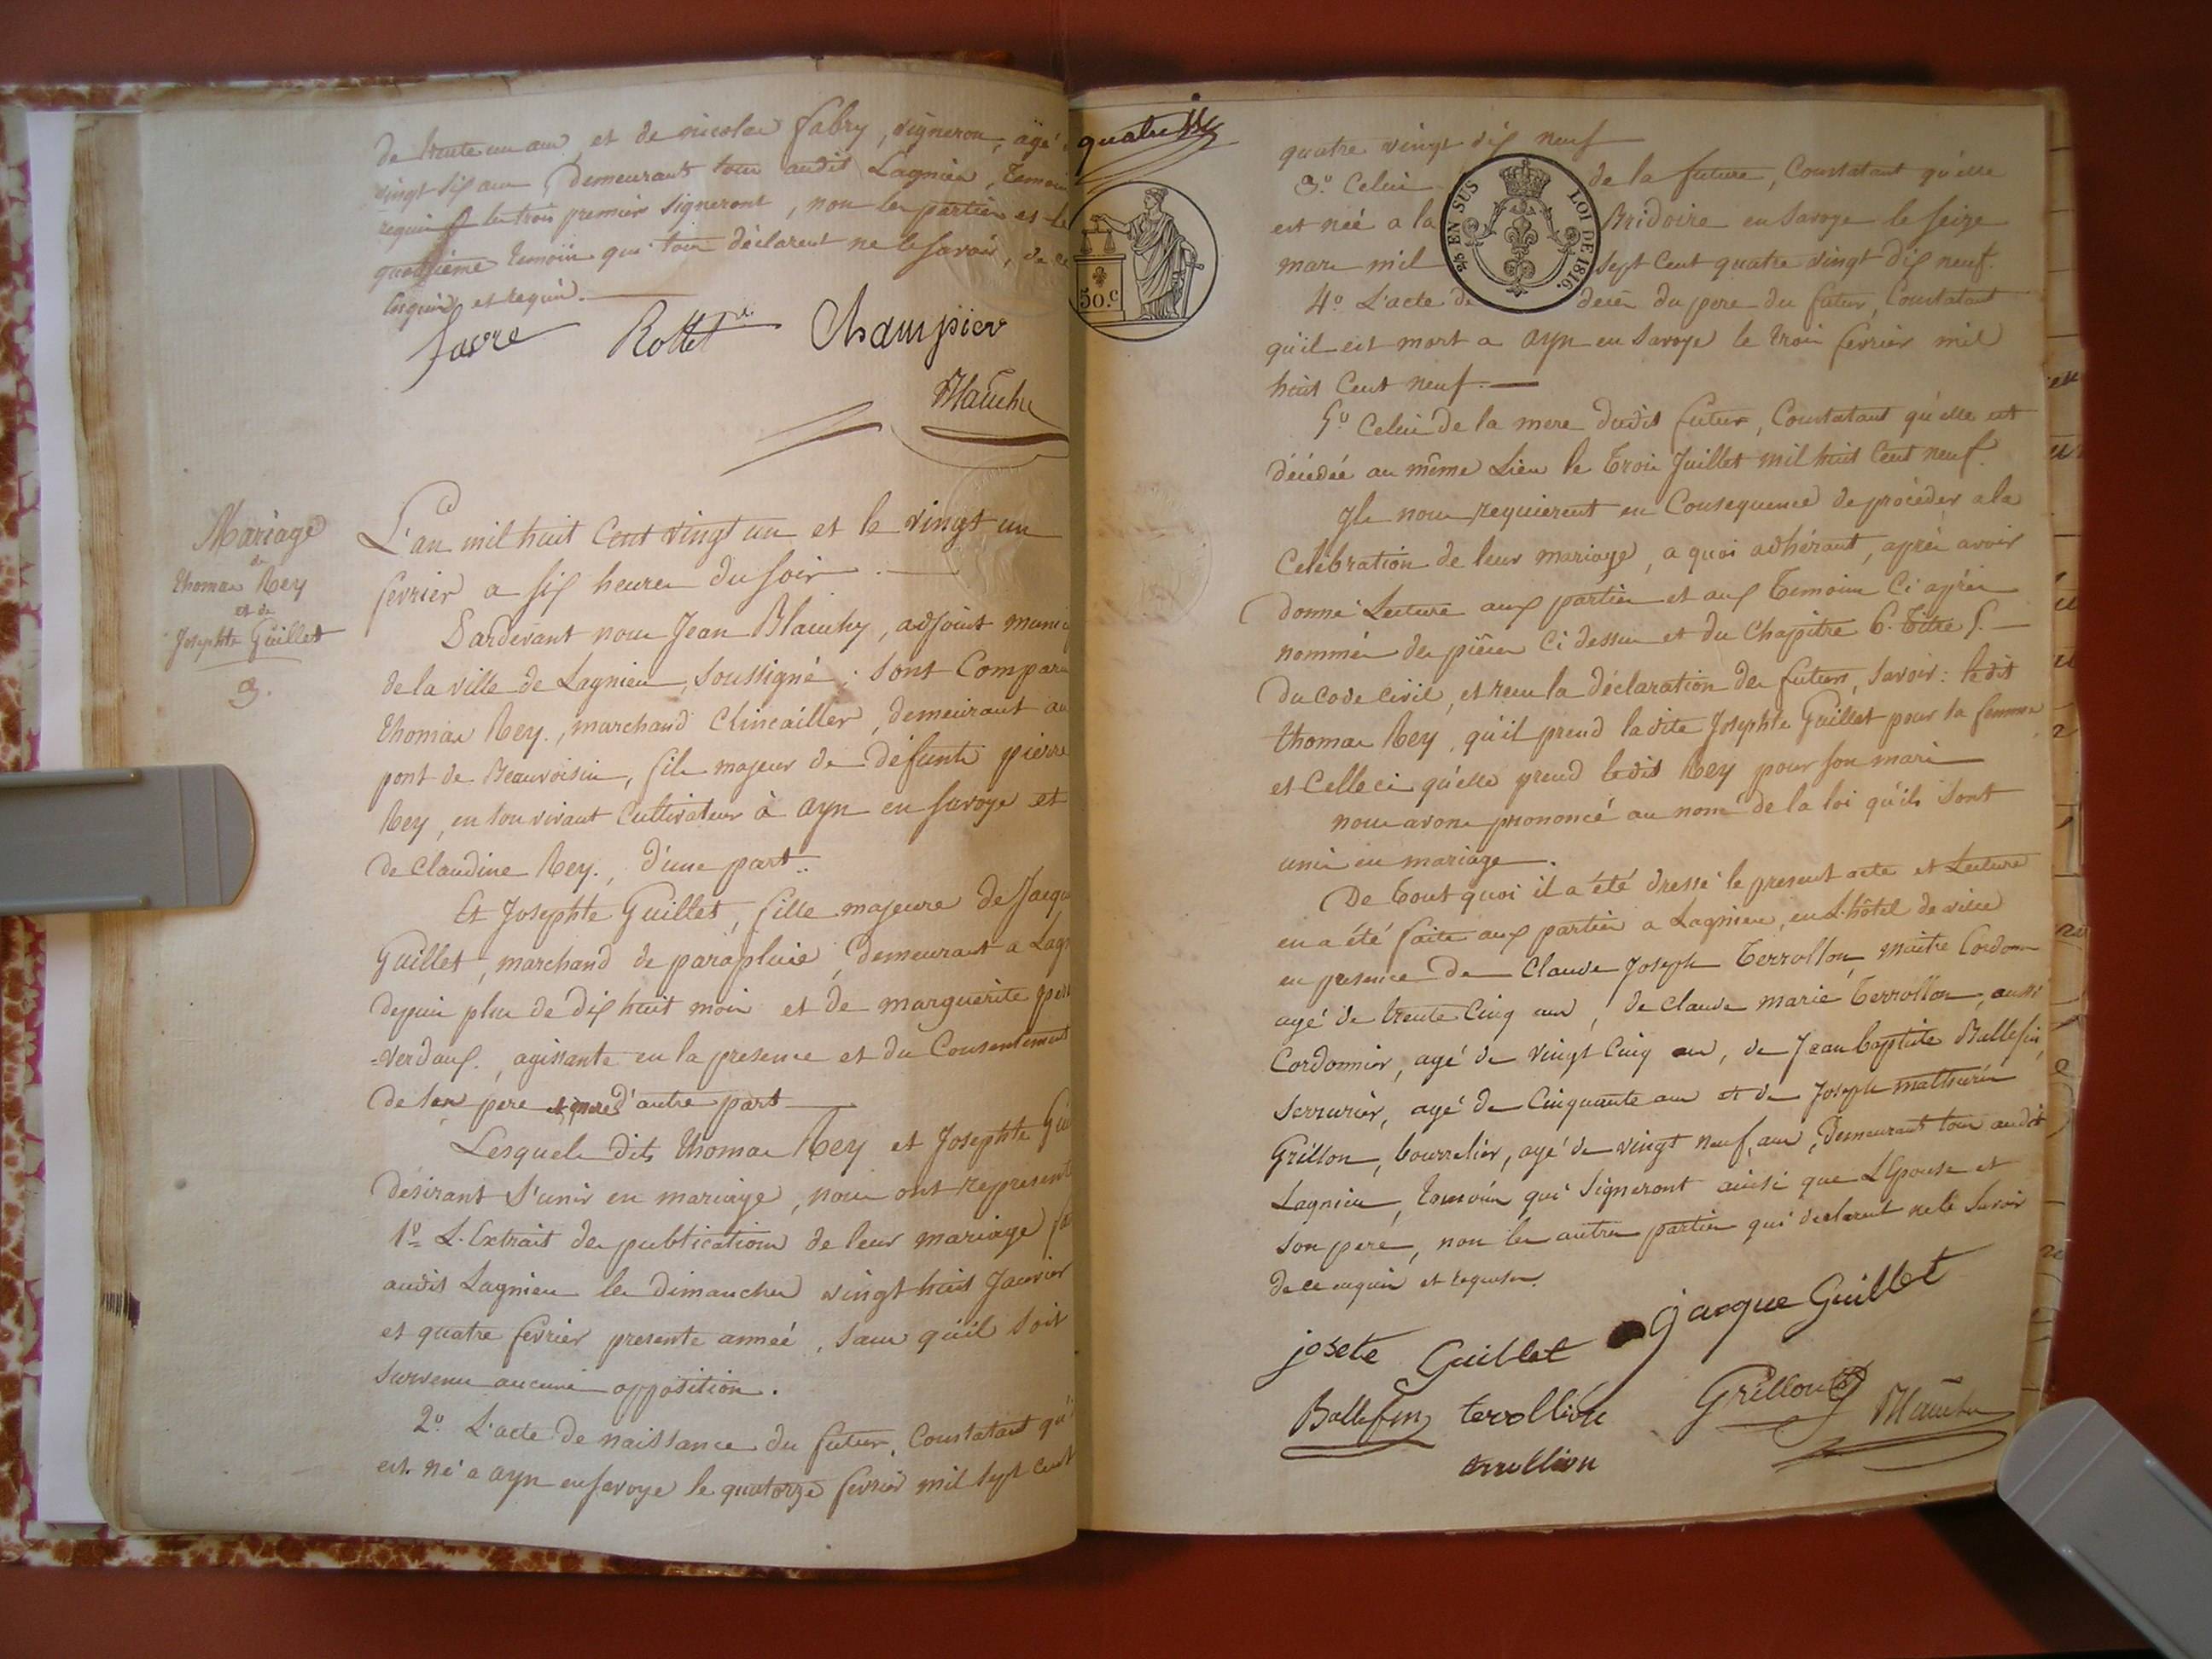 de trente un ans et de nicolas fabry, vigneron, agé
vingt six ans, demeurants tous audit Lagnieu, temoins
requis les trois premiers signeront, non les parties et le
quatrième temoin qui tous déclarent ne le savoir, de ce
enquis et requis.
favre Rottet Champier
Blanchy
Mariage
de
thomas Rey
et de
Josephte Guillet
3.
L'an mil huit Cent vingt un et le vingt un
fevrier a six heures du soir.
Pardevant nous Jean Blanchy, adjoint munici
de la ville de Lagnieu, soussigné; sont Compar
thomas Rey, marchand Clincailler, demeurant au
pont de Beauvoisin, fils majeur de défunts pierre
Rey, en son vivant Cultivateur à ayn en savoye et
de Claudine Rey, d'une part..
Et Josephte Guillet, fille majeure de Jacqu
Guillet, marchand de parapluie, demeurant a Lagn
depuis plus de dix huit mois et de marguerite
-verdaux, agissante en la presence et du Consentement
de son pere d'autre part
Lesquels dits thomas Rey et Josephte Gui
désirant s'unir en mariage, nous ont représent
1º L'Extrait des publications de leur mariage fa
audit Lagnieu les dimanches vingt huit Janvier
et quatre fevrier presente anneé, sans qu'il soit
survenu aucune opposition.
2º. L'acte de naissance du futur, Constatant qu'i
est né a ayn en savoye le quatorze fevrier mil sept cent
quatre
50.c
quatre vingt dix neuf
3º. Celui de la future, Constatant qu'elle
est neé a la Bridoire en Savoye le seize
mars mil sept Cent quatre vingt dix neuf.
⅖ EN SUS LOI DE 1816.
4º. L'acte de deces du pere du futur, Constatant
qu'il est mort a ayn en Savoye le trois fevrier mil
huit Cent neuf.
5º Celui de la mere dudit futur, Constatant qu'elle est
décédée au même Lieu le trois Juillet mil huit Cent neuf.
Ils nous requierent en Consequence de procéder a la
Celebration de leur mariage, a quoi adhérant, après avoir
donné Lecture aux parties et aux temoins Ci après
nommés des pièces Ci dessus et du Chapitre 6. titre 5.
du Code Civil, et recu la déclaration des futurs, Savoir: ledit
thomas Rey, qu'il prend ladite Josephte Guillet pour sa femme
et Celle ci qu'elle prend ledit Rey pour son mari
nous avons prononcé au nom de la loi qu'ils sont
unis en mariage.
De tout quoi il a été dressé le present acte et Lecture
en a été faite aux parties a Lagnieu, en L'hôtel de ville
en presence de Claude Joseph Terrollon, maitre Cordonn
agé de trente Cinq ans, de Claude marie Terrollon, aussi
Cordonnier, agé de vingt Cinq ans, de Jean baptiste Ballefin,
serrurier, agé de Cinquante ans et de Joseph mathurin
Grillon, bourrelier, agé de vingt neuf ans, demeurant tous audit
Lagnieu, temoins qui signeront ainsi que L'Epouse et
son pere, non les autres parties qui declarent ne le savoir
de ce enquis et requises.
josete Guillet jacque Guillet
Ballefin terollion Grillon Blanchy
terollion